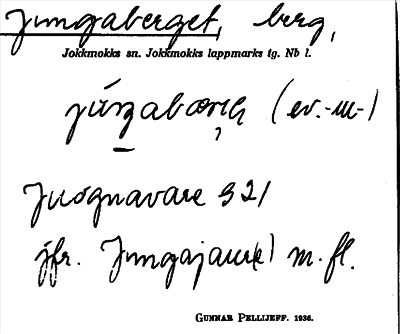 Jungaberget, berg,
Jokkmokks sn. Jokkmokks lappmarks tg. Nb l.
(ev. -m-)
Juognavare 321
jfr. Jungajaure(e) m. fl.
GUNNAR PELLIJEFF. 1936.